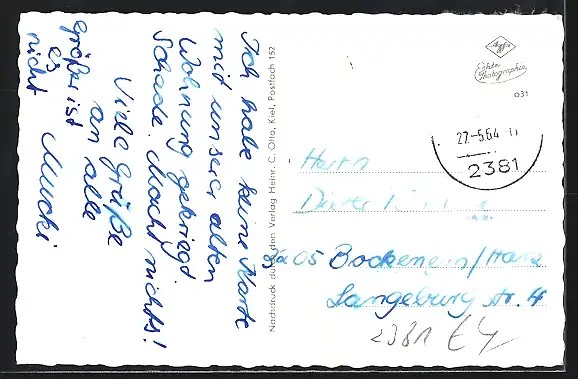 Ich habe keine Karte
mit unserer alten
Wohnung gekriegt.
Schade. Macht nichts!
Viele Grüße
an alle
Mucki
größer ist
es
nicht
Nachdruck durch den Verlag Heinr. C. Otto, Kiel, Postfach 152
Agfa
Echte
Photographie
031
27.-5.64
2381
Herrn
Dieter
Bockenem/Harz
Langeburg str. 4
2381